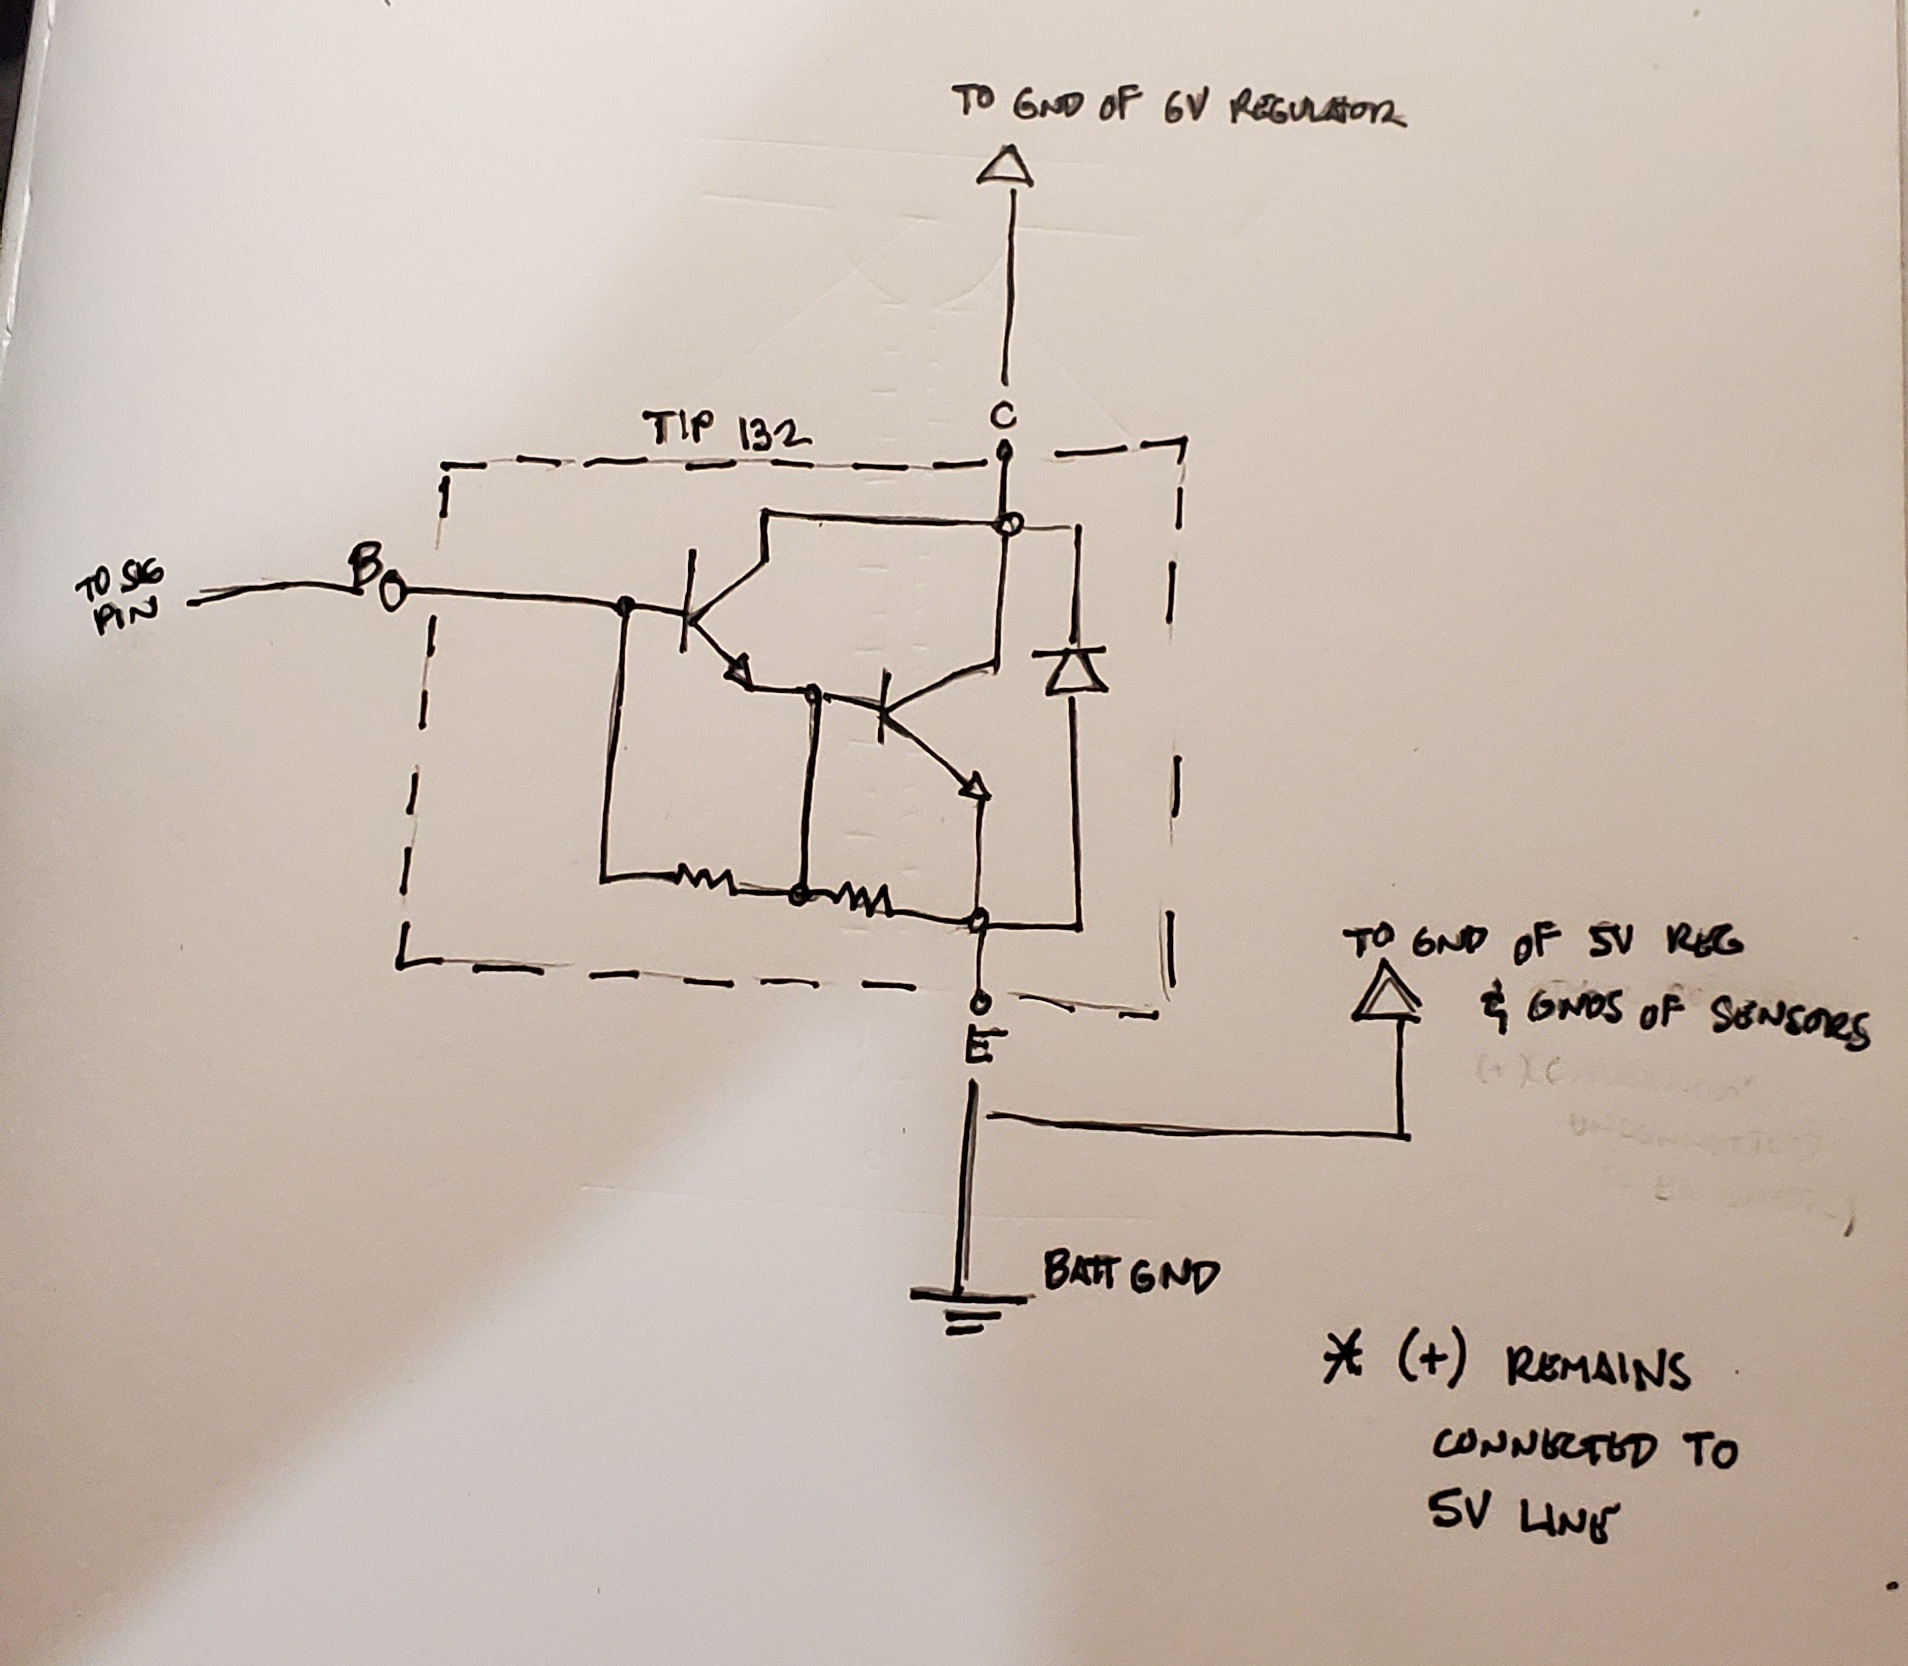 TO GND OF 6V REGULATOR
C
TIP 132
B
TO SIG
PIN
TO GND OF 5V REG
& GNDS OF SENSORS
E
BATT GND
* (+) REMAINS
CONNECTED TO
5V LINE